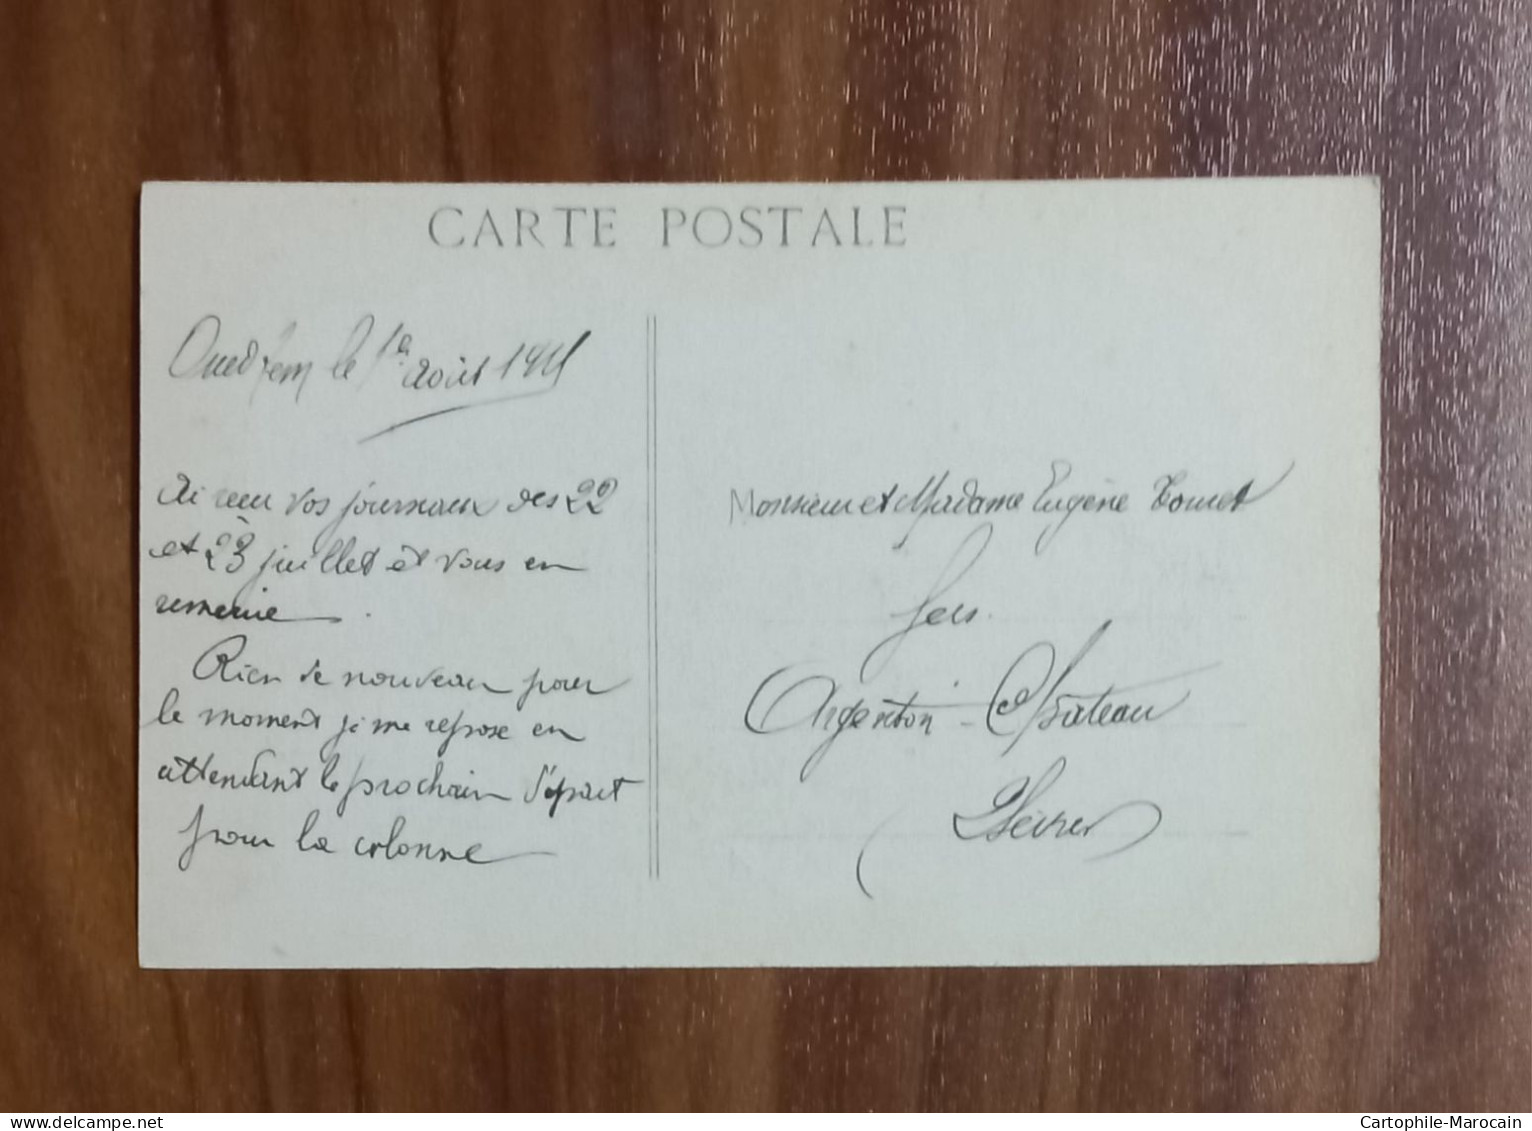 CARTE POSTALE
Oued Zem le 1er août 191
Ai reçu vos journaux des 22
et 23 juillet et vous en
remercie.
Rien de nouveau pour
le moment je me repose en
attendant le prochain départ
pour la colonne
Monsieur et Madame Eugène
Argenton-Château
2 Sèvres
Cartophile-Marocain